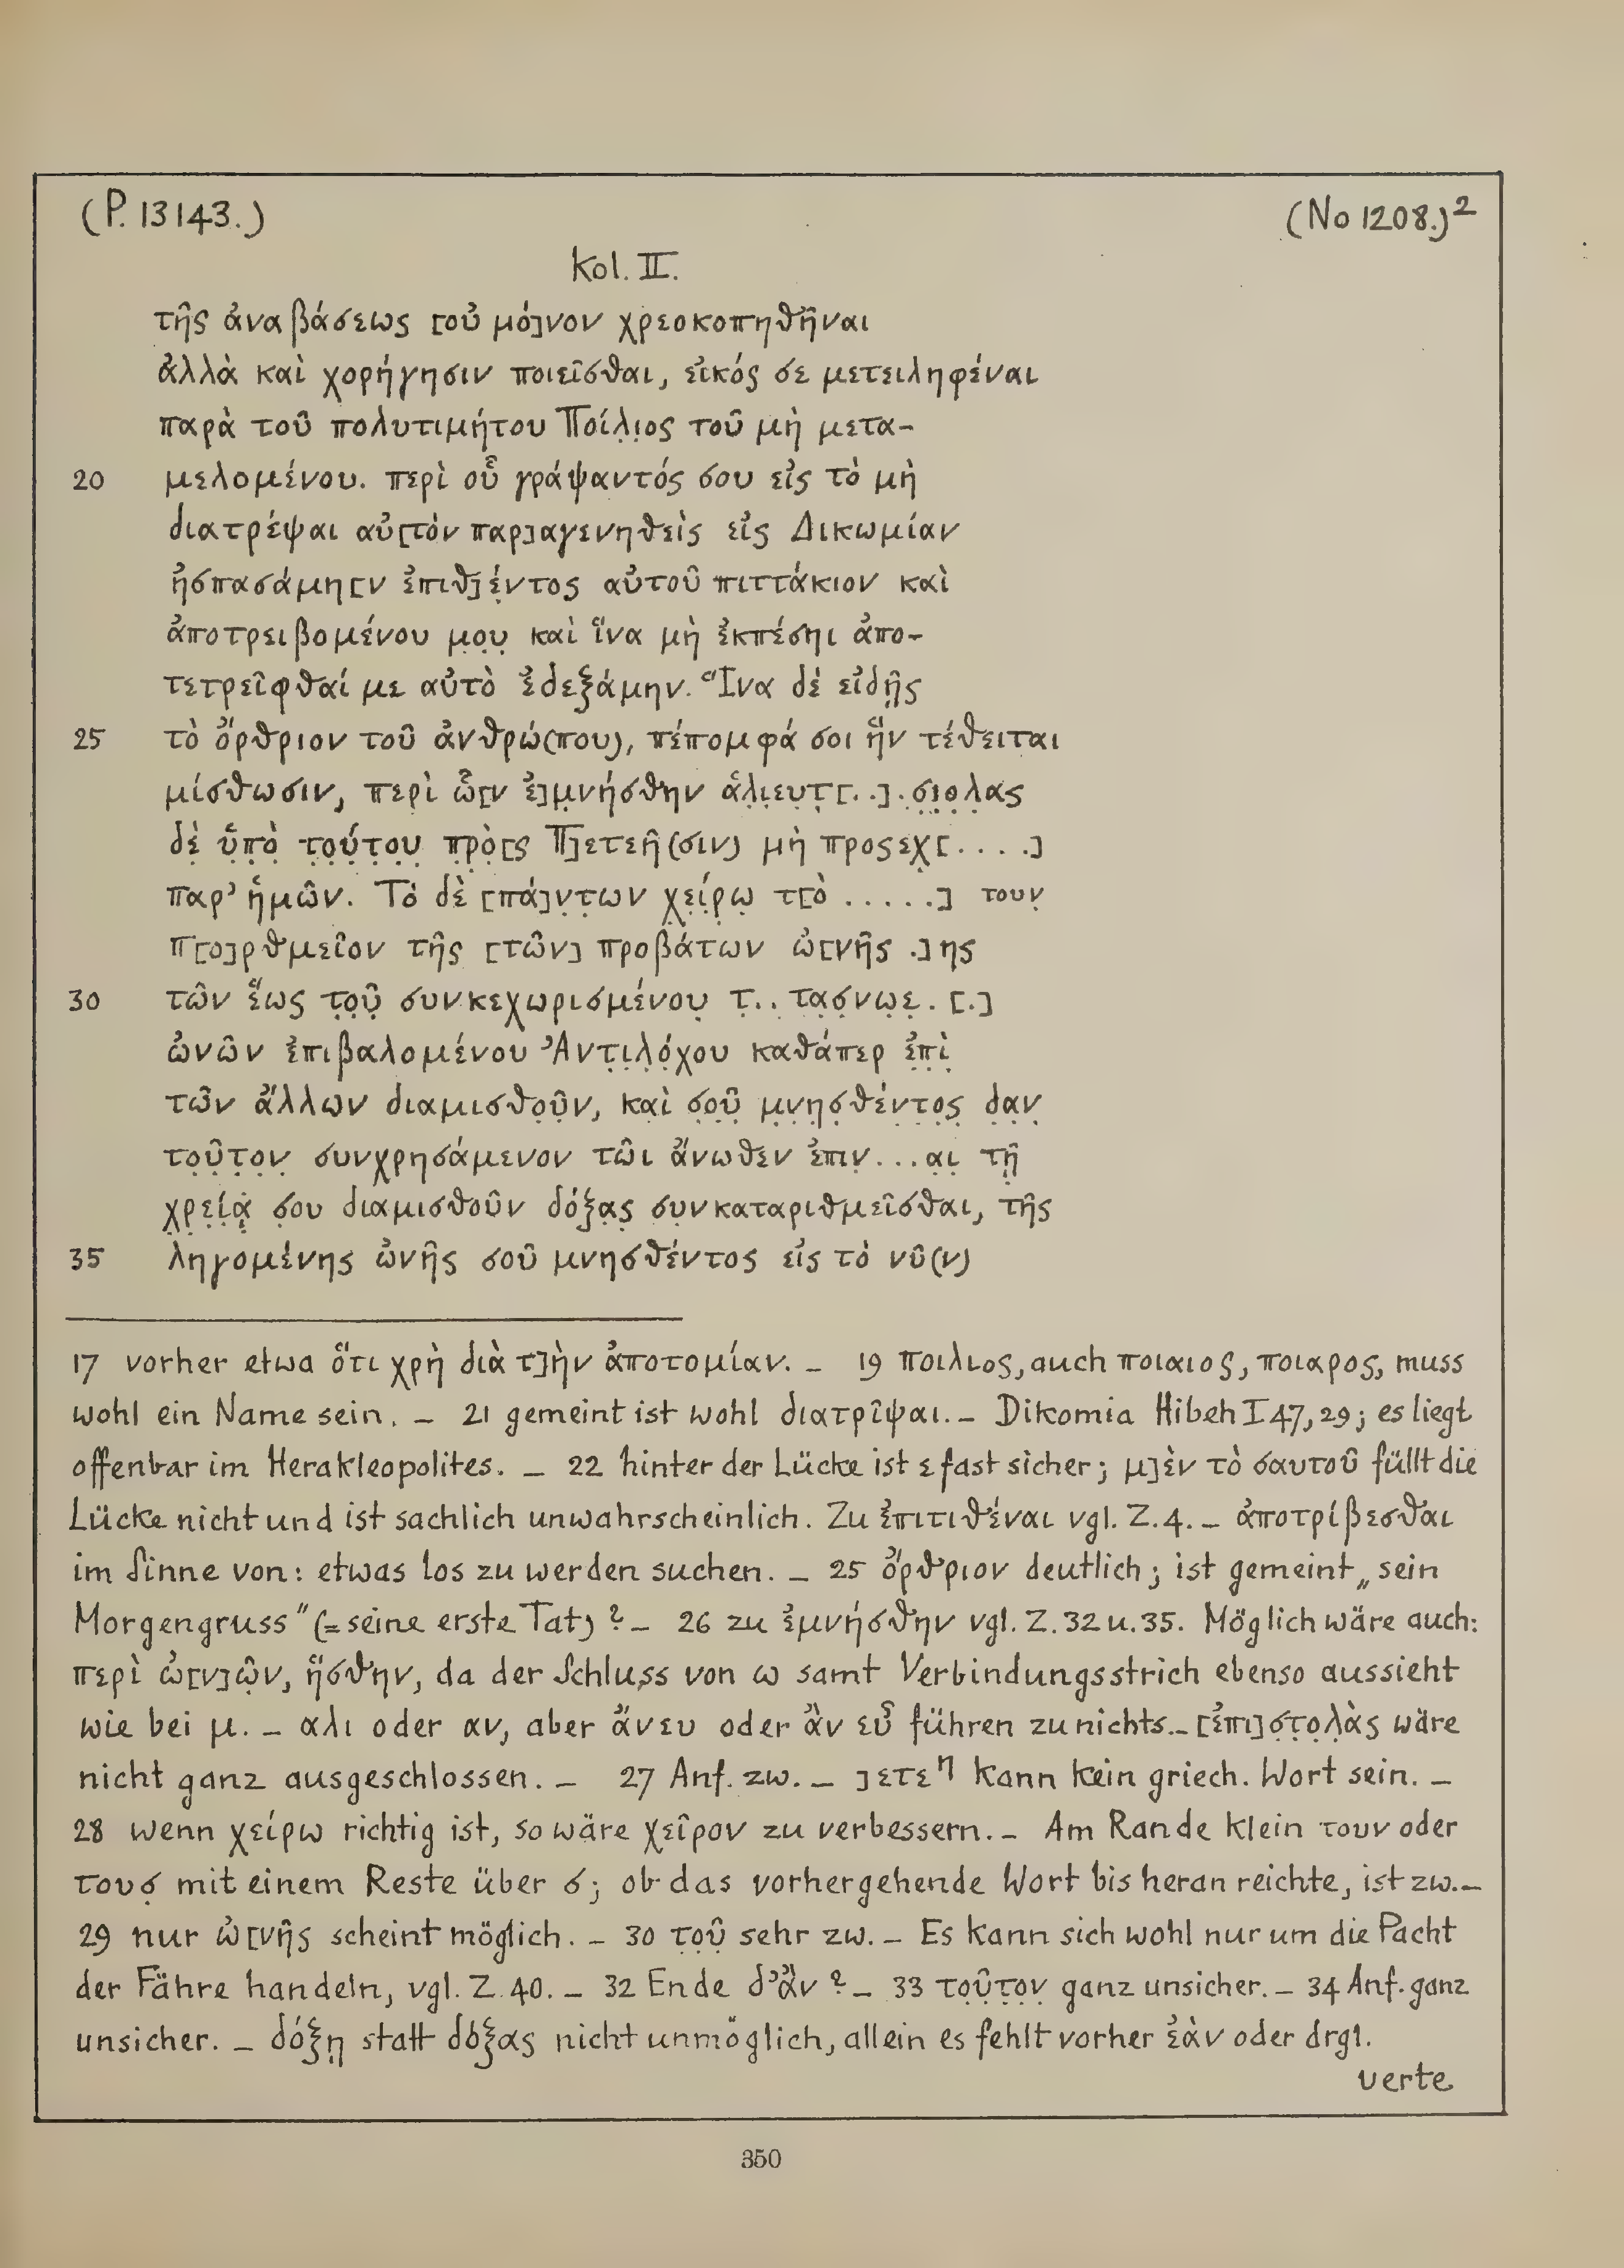 (P. 13143.) (No 1208.)²
Kol. II.
τῆς ἀναβάσεως [οὐ μό]νον χρεοκοπηθῆναι
ἀλλὰ καὶ χορήγησιν ποιεῖσθαι, εἰκός σε μετειληφέναι
παρὰ τοῦ πολυτιμήτου Ποίλ̣ι̣ος τοῦ μὴ μετα-
20 μελομένου. περὶ οὗ γράψαντός σου εἰς τὸ μὴ
διατρέψαι αὐ[τὸν παρ]αγενηθεὶς εἰς Δικωμίαν
ἠσπασάμη[ν ἐπιθ]έ̣ντος αὐτοῦ πιττάκιον καὶ
ἀποτρειβομένου μ̣ο̣υ̣ καὶ ἵνα μὴ ἐκπέσηι ἀπο-
τετρεῖφθαί με αὐτὸ ἐδεξάμην. Ἵνα δὲ εἰδῇ̣ς
25 τὸ ὄρθριον τοῦ ἀνθρώ(που), πέπομφά σοι ἣν τέθειται
μίσθωσιν, περὶ ὧ[ν ἐ]μ̣νήσθην ἁλ̣ι̣ε̣υ̣τ̣[. .] . σ̣ι̣ο̣λ̣ας
δὲ̣ ὑ̣π̣ὸ̣ τ̣ο̣ύ̣τ̣ο̣υ̣ π̣ρ̣ὸ̣[ς Π]ετεῆ(σιν) μὴ προσεχ̣[. . . .]
παρ’ ἡμῶν. Τὸ δὲ [πά]ν̣τ̣ων χ̣ε̣ί̣ρ̣ω̣ τ[ὸ . . . . .] τουν̣
π[ο]ρθμεῖον τῆς [τῶν] προβάτων ὠ[νῆς .]ης
30 τῶν ἕως τ̣ο̣ῦ̣ συνκεχωρισμένου̣ τ̣ . . τ̣α̣σ̣ν̣ω̣ε̣ . [.]
ὠνῶν ἐπιβαλομένου Ἀντ̣ι̣λ̣ό̣χου καθάπερ ἐ̣π̣ὶ̣
τῶν ἄλλων διαμισθο̣ῦ̣ν, καὶ σ̣ο̣ῦ̣ μ̣ν̣η̣σ̣θέ̣ν̣τ̣ο̣ς̣ δ̣α̣ν̣
τ̣ο̣ῦ̣τ̣ο̣ν̣ συνχρησάμενον τῶι ἄνωθεν ἐπιν̣ . . . α̣ι̣ τῇ̣
χ̣ρ̣ε̣ί̣ᾳ̣ σ̣ου διαμισθοῦν δόξ̣α̣ς̣ συ̣νκαταριθμεῖσθαι, τῆς
35 ληγομένης ὠνῆς σοῦ μνησθέντος εἰς τὸ νῦ(ν)
17 vorher etwa ὅτι χρὴ διὰ τ]ὴν ἀποτομίαν. – 19 ποιλιος, auch ποιαιος, ποιαρος, muss
wohl ein Name sein. – 21 gemeint ist wohl διατρῖψαι. – Dikomia Hibeh I 47, 29; es liegt
offenbar im Herakleopolites. – 22 hinter der Lücke ist ε fast sicher; μ]ὲν τὸ σαυτοῦ füllt die
Lücke nicht und ist sachlich unwahrscheinlich. Zu ἐπιτιθέναι vgl. Z. 4. – ἀποτρίβεσθαι
im Sinne von: etwas los zu werden suchen. – 25 ὄρθριον deutlich; ist gemeint „sein
Morgengruss" (= seine erste Tat) ? – 26 zu ἐμνήσθην vgl. Z. 32 u. 35. Möglich wäre auch:
περὶ ὠ[ν]ῶ̣ν, ἥσθην, da der Schluss von ω samt Verbindungsstrich ebenso aussieht
wie bei μ. – αλι oder αν, aber ἄνευ oder ἂν εὖ führen zu nichts. – [ἐπι]σ̣τ̣ο̣λ̣ὰς wäre
nicht ganz ausgeschlossen. – 27 Anf. zw. – ]ετεη kann kein griech. Wort sein. –
28 wenn χείρω richtig ist, so wäre χεῖρον zu verbessern. – Am Rande klein τουν oder
τουσ̣ mit einem Reste über σ; ob das vorhergehende Wort bis heran reichte, ist zw. –
29 nur ὠ[νῆς scheint möglich. – 30 τ̣ο̣ῦ̣ sehr zw. – Es kann sich wohl nur um die Pacht
der Fähre handeln, vgl. Z. 40. – 32 Ende δ’ἂν ? – 33 τ̣ο̣ῦ̣τ̣ο̣ν̣ ganz unsicher. – 34 Anf. ganz
unsicher. – δόξῃ statt δόξας nicht unmöglich, allein es fehlt vorher ἐὰν oder drgl.
verte
350